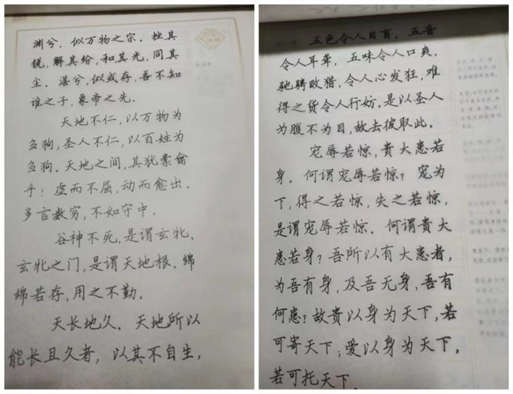 渊兮，似万物之宗。挫其
锐，解其纷，和其光，同其
尘。湛兮，似或存，吾不知
谁之子，象帝之先。
天地不仁，以万物为
刍狗，圣人不仁，以百姓为
刍狗。天地之间，其犹橐龠
乎！虚而不屈，动而愈出。
多言数穷，不如守中。
谷神不死，是谓玄牝。
玄牝之门，是谓天地根，绵
绵若存，用之不勤。
天长地久。天地所以
能长且久者，以其不自生，
五色令人目盲，五音
令人耳聋，五味令人口爽，
驰骋畋猎，令人心发狂，难
得之货令人行妨，是以圣人
为腹不为目，故去彼取此。
宠辱若惊，贵大患若
身。何谓宠辱若惊？宠为
下，得之若惊，失之若惊，
是谓宠辱若惊。何谓贵大
患若身？吾所以有大患者，
为吾有身，及吾无身，吾有
何患？故贵以身为天下，若
可寄天下；爱以身为天下，
若可托天下.